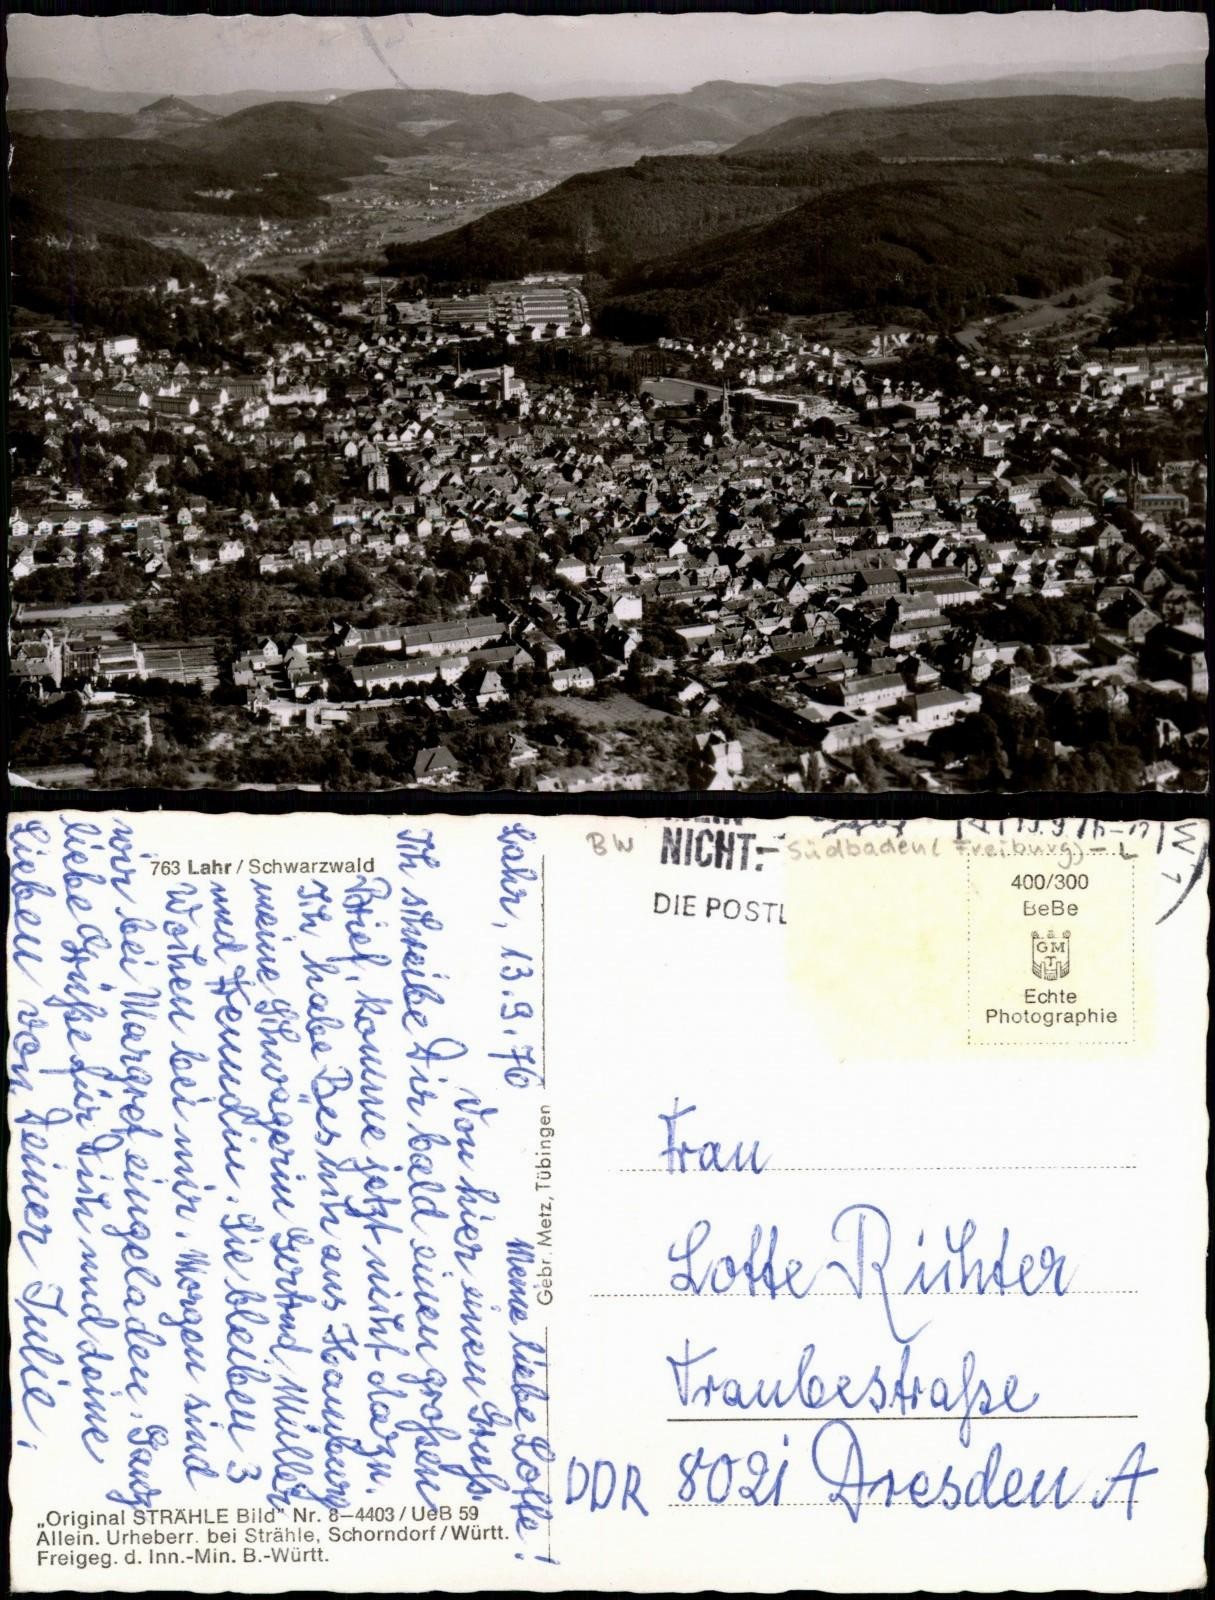 763 Lahr / Schwarzwald
Lahr, 13.9.76
Meine liebe Lotte!
Von hier einen Gruß.
Ich schreibe Dir bald einen großen
Brief, komme jetzt nicht dazu.
Ich habe Besuch aus Hamburg
meine Schwägerin Gertrud Müller
und Freundin. Sie bleiben 3
Wochen bei mir. Morgen sind
wir bei Margret eingeladen. Ganz
liebe Grüße für Dich und deine
Lieben von Deiner Julie.
„Original STRÄHLE Bild" Nr. 8–4403 / UeB 59
Allein. Urheberr. bei Strähle, Schorndorf / Württ.
Freigeg. d. Inn.-Min. B.-Württ.
Gebr. Metz, Tübingen
BW
Südbaden (Freiburg) - L
NICHT:-
DIE POSTL
13.9.76-
400/300
BeBe
GMT
Echte
Photographie
Frau
Lotte Richter
Traubestraße
DDR 8021 Dresden A